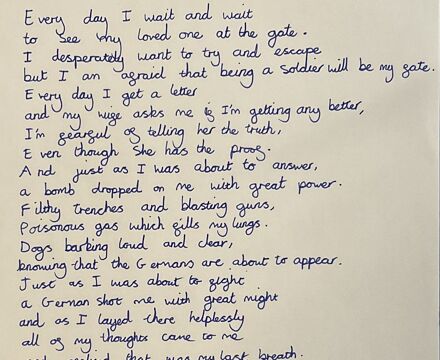 Every day I wait and wait
to see my loved one at the gate.
I desperately want to try and escape
but I am afraid that being a soldier will be my fate.
Every day I get a letter
and my wife asks me if I'm getting any better,
I'm fearful of telling her the truth,
Even though she has the proof.
And just as I was about to answer,
a bomb dropped on me with great power.
Filthy trenches and blasting guns,
Poisonous gas which fills my lungs.
Dogs barking loud and clear,
knowing that the Germans are about to appear.
Just as I was about to fight
a German shot me with great might
and as I layed there helplessly
all of my thoughts came to me
that was my last breath.